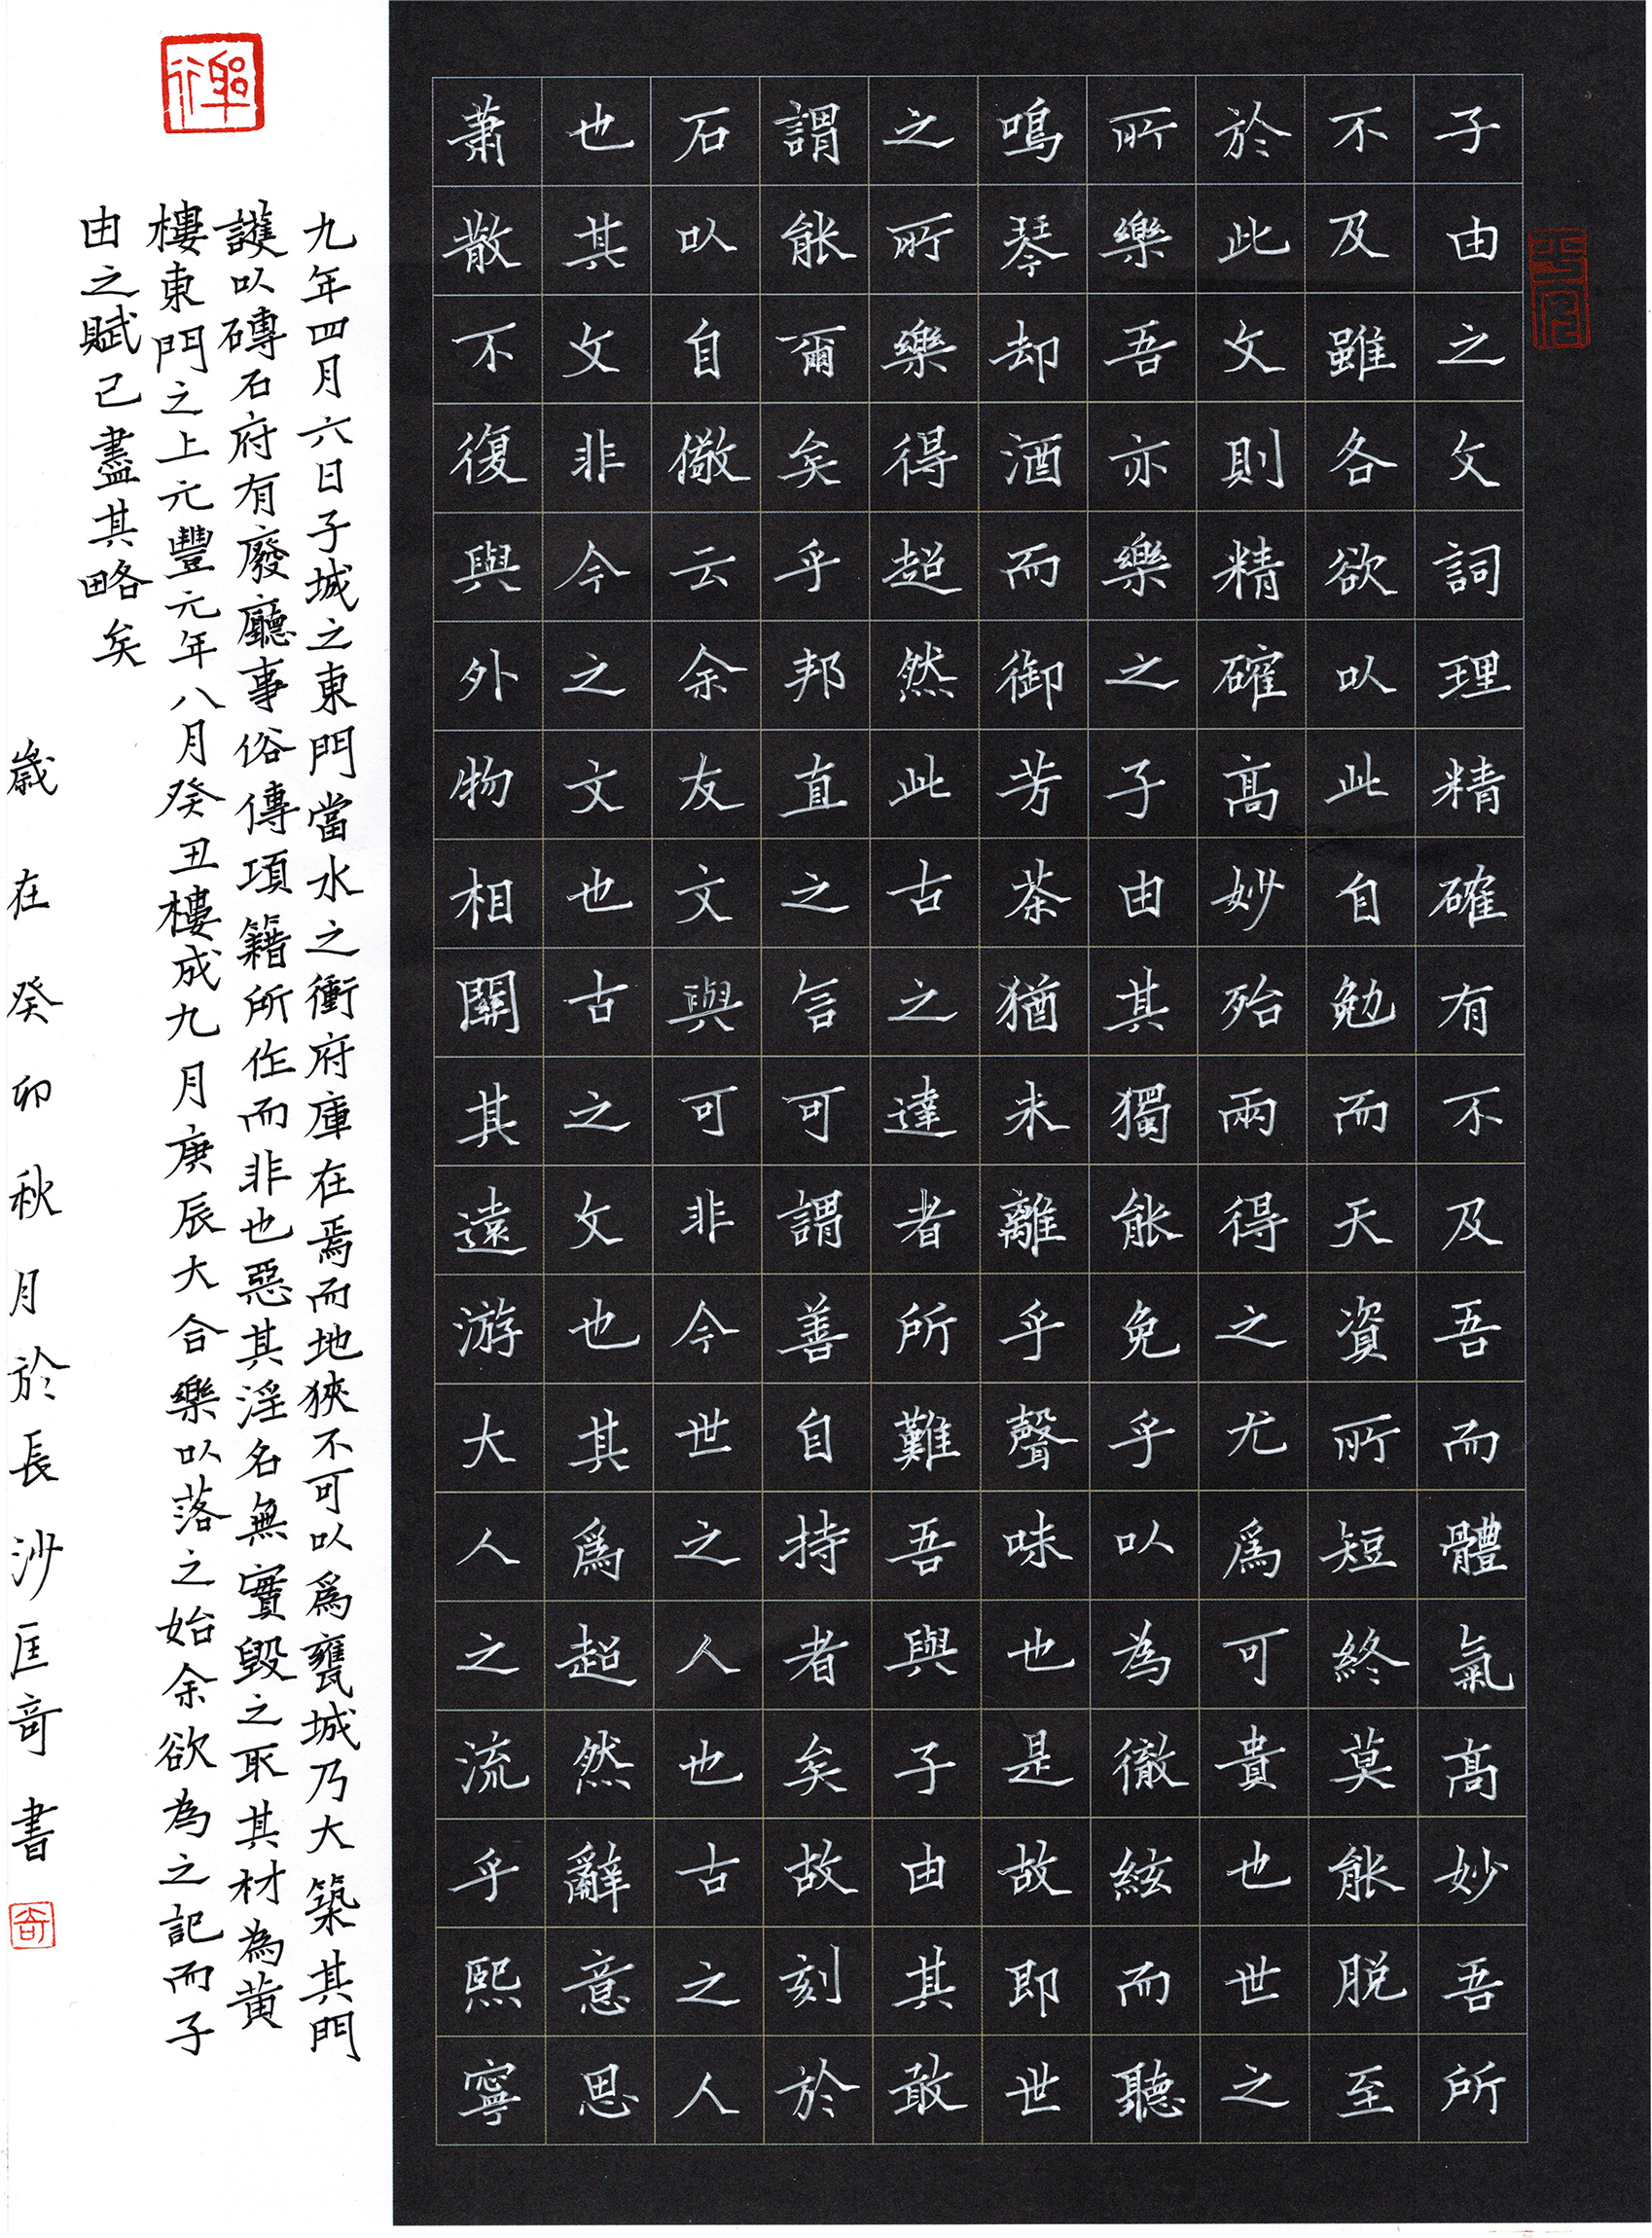 子由之文詞理精確有不及吾而體氣高妙吾所
不及雖各欲以此自勉而天資所短終莫能脱至
於此文則精確高妙殆兩得之尤爲可貴也世之
所樂吾亦樂之子由其獨能免乎以為徹絃而聽
鳴琴却酒而御芳茶猶未離乎聲味也是故即世
之所樂得超然此古之達者所難吾與子由其敢
謂能爾矣乎邦直之言可謂善自持者矣故刻於
石以自儆云余友文與可非今世之人也古之人
也其文非今之文也古之文也其爲超然辭意思
蕭散不復與外物相關其遠游大人之流乎熙寧
九年四月六日子城之東門當水之衝府庫在焉而地狹不可以爲甕城乃大築其門
護以磚石府有廢廳事俗傳項籍所作而非也惡其淫名無實毀之取其材為黄
樓東門之上元豐元年八月癸丑樓成九月庚辰大合樂以落之始余欲為之記而子
由之賦已盡其略矣
歲在癸卯秋月於長沙匡奇書
奇